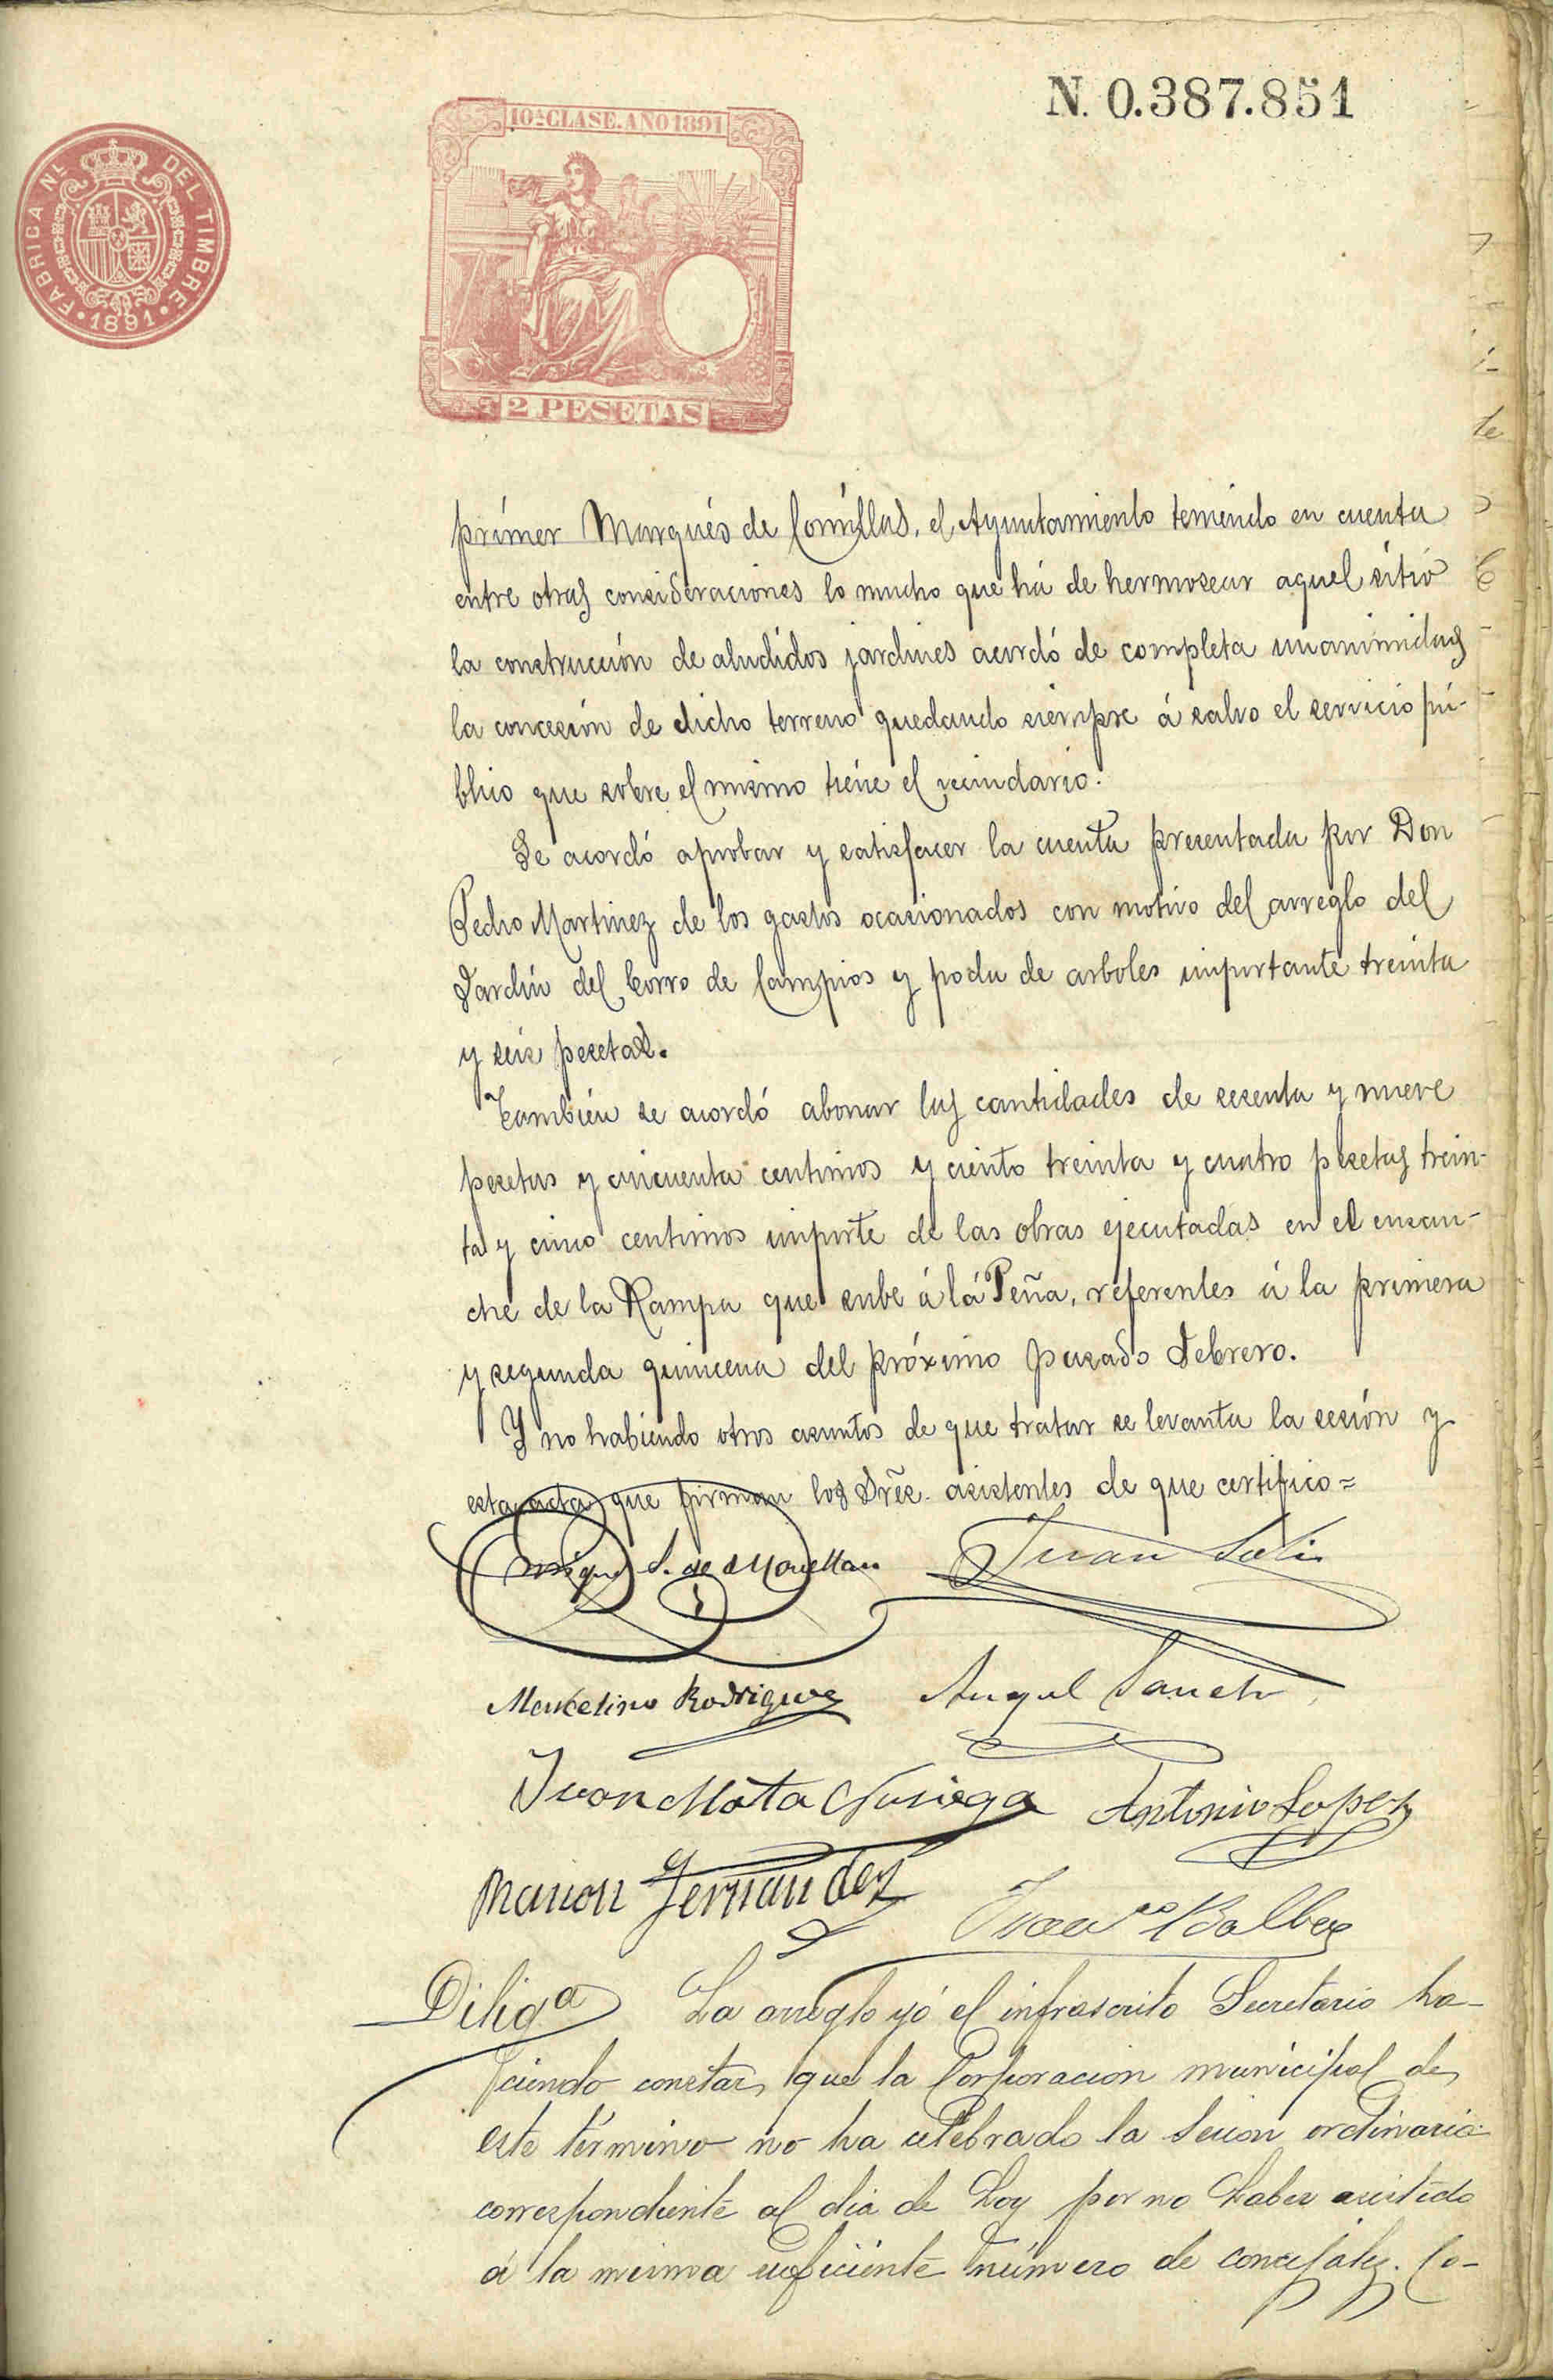 N. 0.387.851
10ª CLASE. AÑO 1891
FABRICA NL. DEL TIMBRE
1891
2 PESETAS
primer Marqués de Comillas, el Ayuntamiento teniendo en cuenta
entre otras consideraciones lo mucho que há de hermosear aquel sitio
la construcción de aludidos jardines acordó de completa unanimidad
la concesión de dicho terreno quedando siempre á salvo el servicio pú-
blico que sobre el mismo tiene el vecindario.
Se acordó aprobar y satisfacer la cuenta presentada por Don
Pedro Martinez de los gastos ocasionados con motivo del arreglo del
Jardín del Corro de Campios y poda de arboles importante treinta
y seis pesetas.
También se acordó abonar las cantidades de sesenta y nueve
pesetas y cincuenta centimos y ciento treinta y cuatro pesetas trein-
ta y cinco centimos importe de las obras ejecutadas en el ensan-
che de la Rampa que sube á lá Peña, referentes á la primera
y segunda quincena del próximo pasado Febrero.
Y no habiendo otros asuntos de que tratar se levanta la sesión y
esta acta que firman los Sres. asistentes de que certifico=
Miguel S. de Movellan Juan Solis
Marcelino Rodriguez Angel Sanch
Juan Mata Noriega Antonio Lopez
Manon Fernandez Juan Balbas
Diligª La arreglo yó el infrascrito Secretario ha-
ciendo constar, que la Corporacion municipal de
este término no ha celebrado la Sesion ordinaria
correspondiente al dia de hoy por no haber asistido
á la misma suficiente número de concejales. Co-